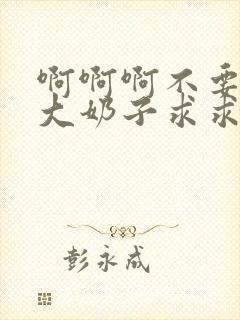 啊啊啊不要
大奶子求求
彭永成